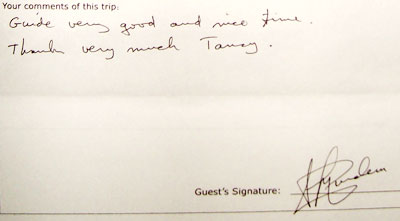 Your comments of this trip:
Guide very good and nice time.
Thanks very much Tansy.
Guest's Signature: